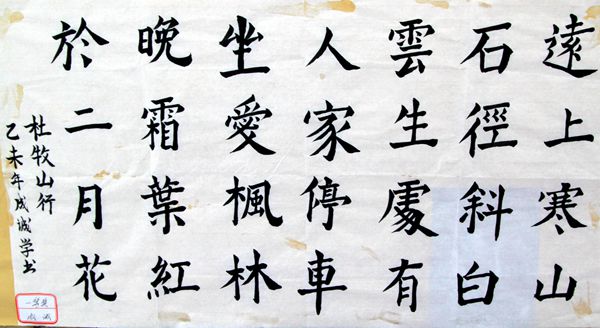 遠上寒山
石徑斜白
雲生處有
人家停車
坐愛楓林
晚霜葉紅
於二月花
杜牧山行
乙未年成诚学书